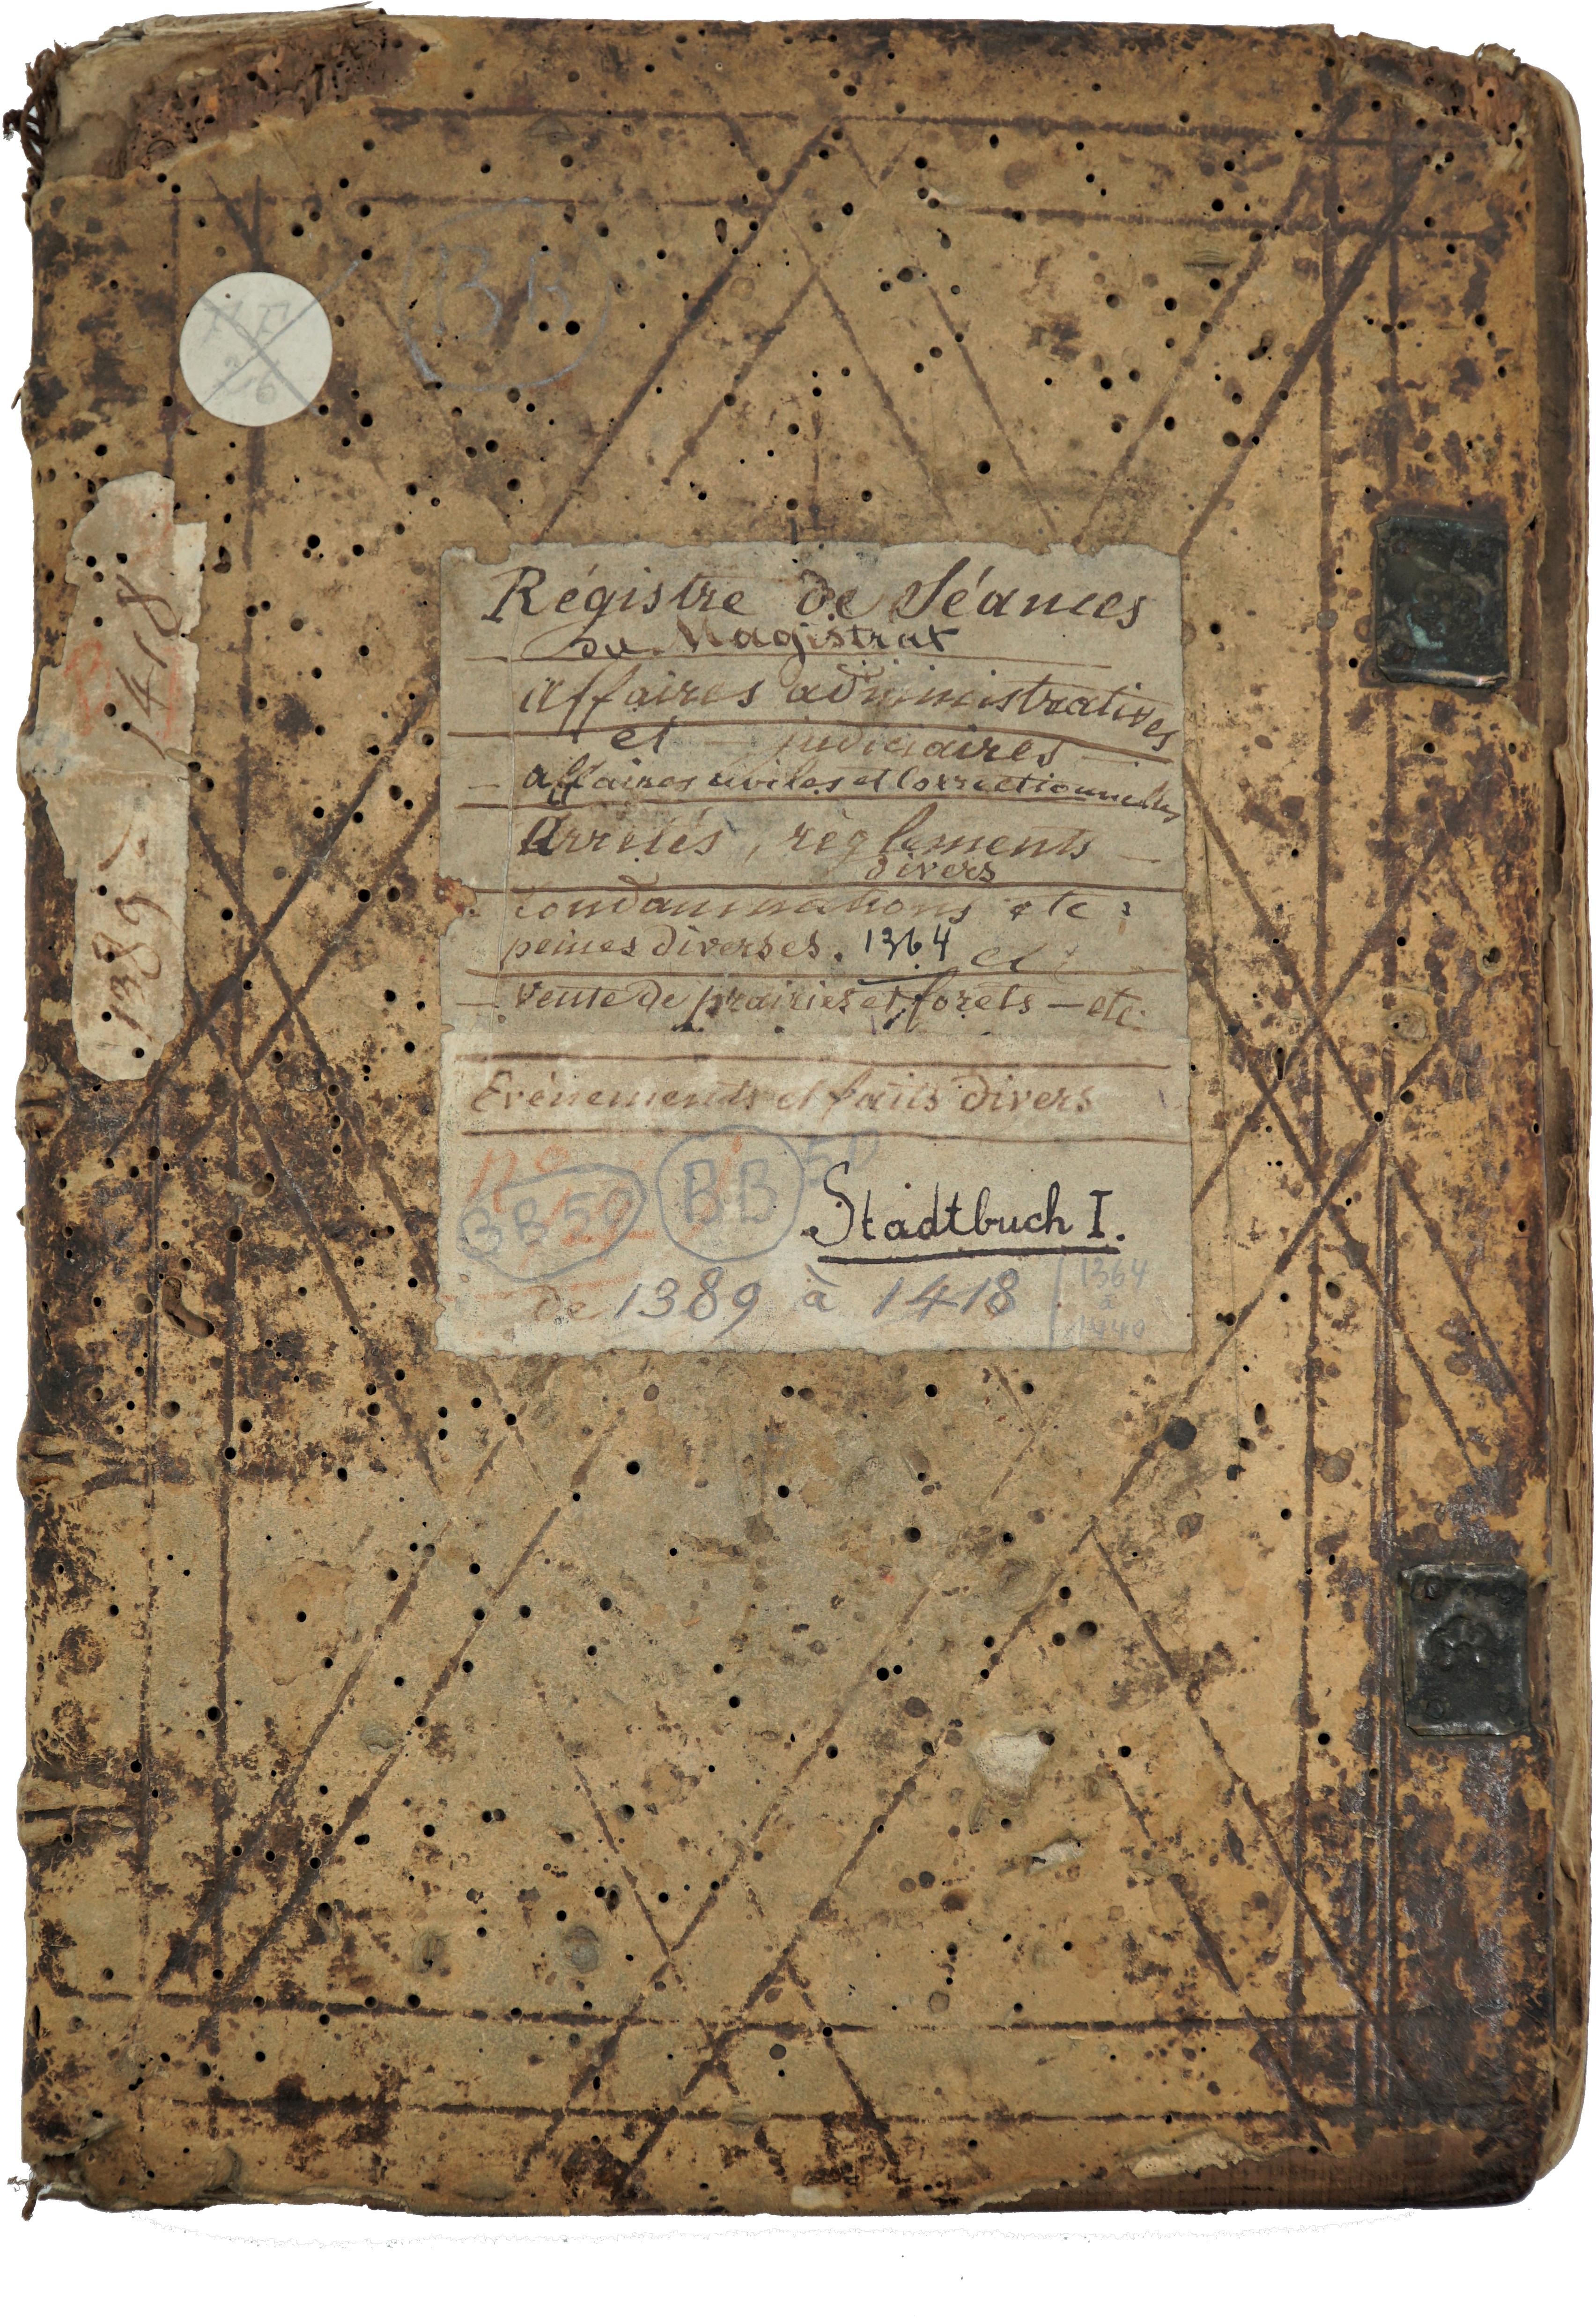 BB
1389
1418
Régistre de Séances
du Magistrat
affaires administratives
et — judiciaires —
— affaires civiles et Correctionnelles
Arrêtés, règlements —
divers
condamnations etc :
peines diverses. 1364 et
— vente de prairies et forets — etc
Evénements et faits divers
No
BB 59 BB 50
Stadtbuch I.
de 1389 à 1418
1364
à
1440